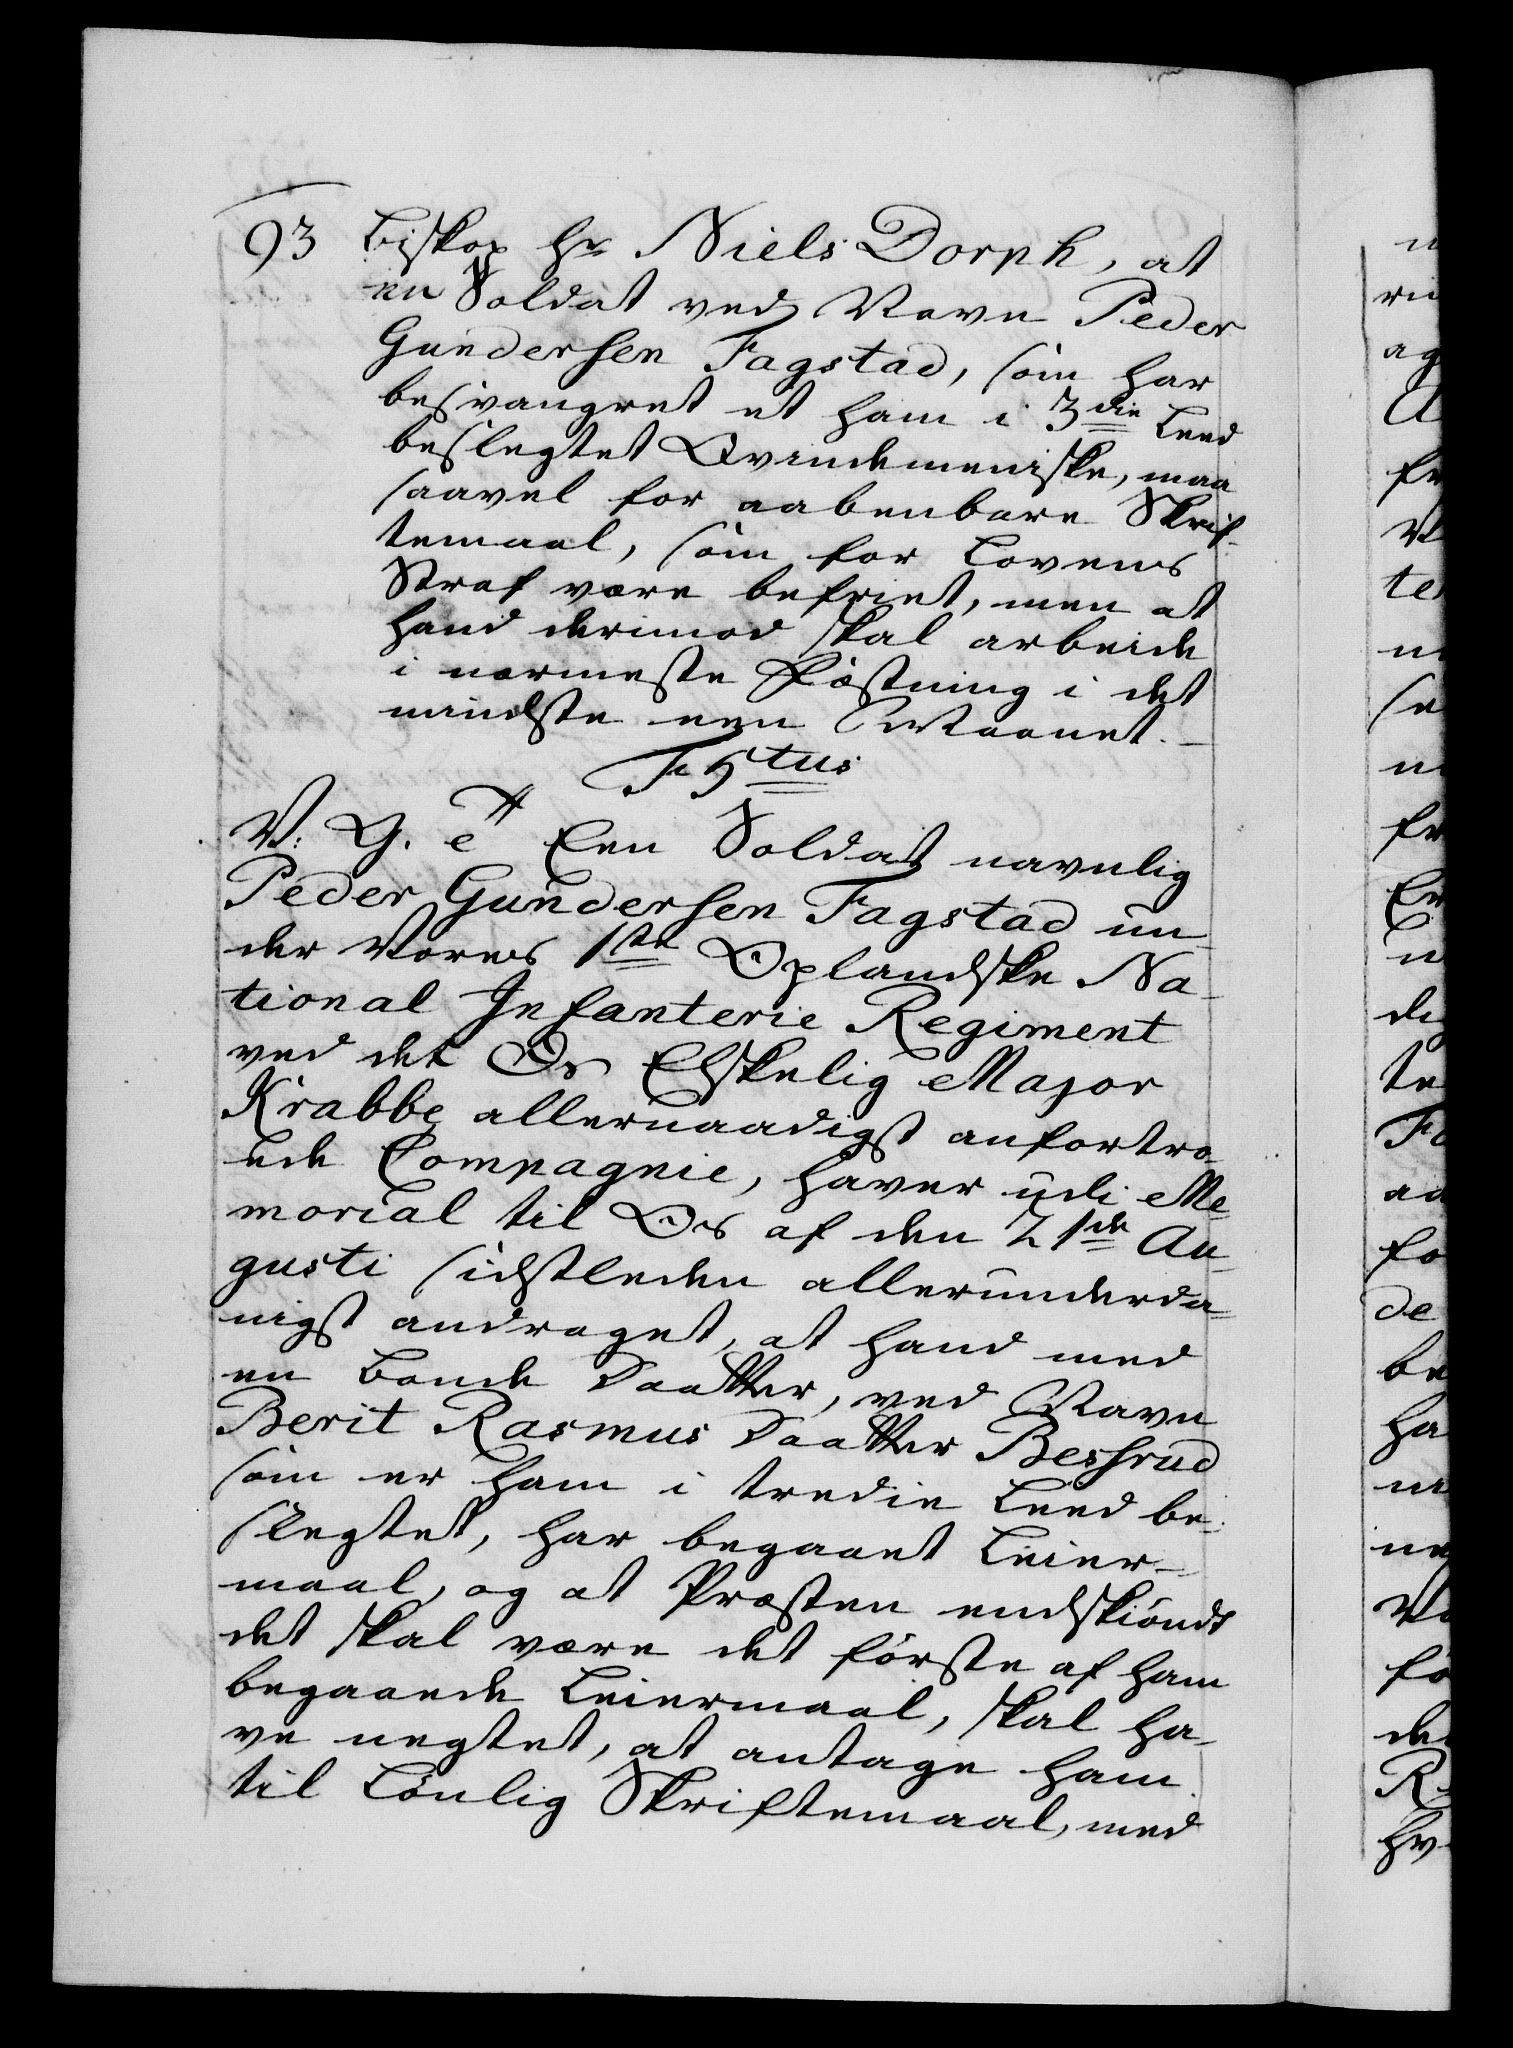 93 Biskop Hr Niels Dorph, at
en Soldat ved Navn Peder
Gundersen Fagstad, som har
besvangret et ham i 3die Leed
beslegtet Qvindemeniske, maa
saavel for aabenbare Skrif-
temaal, som for Lovens
Straf være befriet, men at
hand derimod skal arbeide
i nærmeste Fæstning i det
mindste een Maanet.
F 5tus
V. G. A. Een Soldat navnlig
Peder Gundersen Fagstad un-
der Vores 1ste Oplandske Na-
tional Infanterie Regiment
ved det Os Elskelig Major
Krabbe allernaadigst anfortro-
ede Compagnie, haver udi Me-
morial til Os af den 21de Au-
gusti sidstleden allerunderda-
nigst andraget, at hand med
en Bonde Daatter, ved Navn
Berit Rasmus Daatter Besserud
som er ham i tredie Leed be-
slegtet, har begaaet Leier-
maal, og at Præsten endskiöndt
det skal være det förste af ham
begaaede Leiermaal, skal ha-
ve negtet, at antage ham
til Lönlig Skriftemaal, med